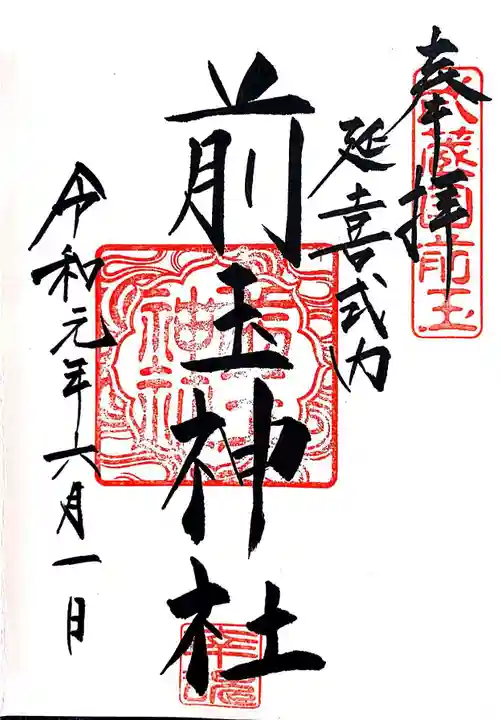 奉拝
武蔵国前玉
延喜式内
前玉神社
令和元年六月一日